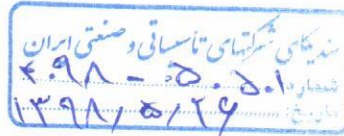 سندیکای شرکتهای تأسیساتی و صنعتی ایران
شماره: ۴۰۹۸ - ۵۰۵۰۱
تاریخ: ۱۳۹۸/۵/۲۶